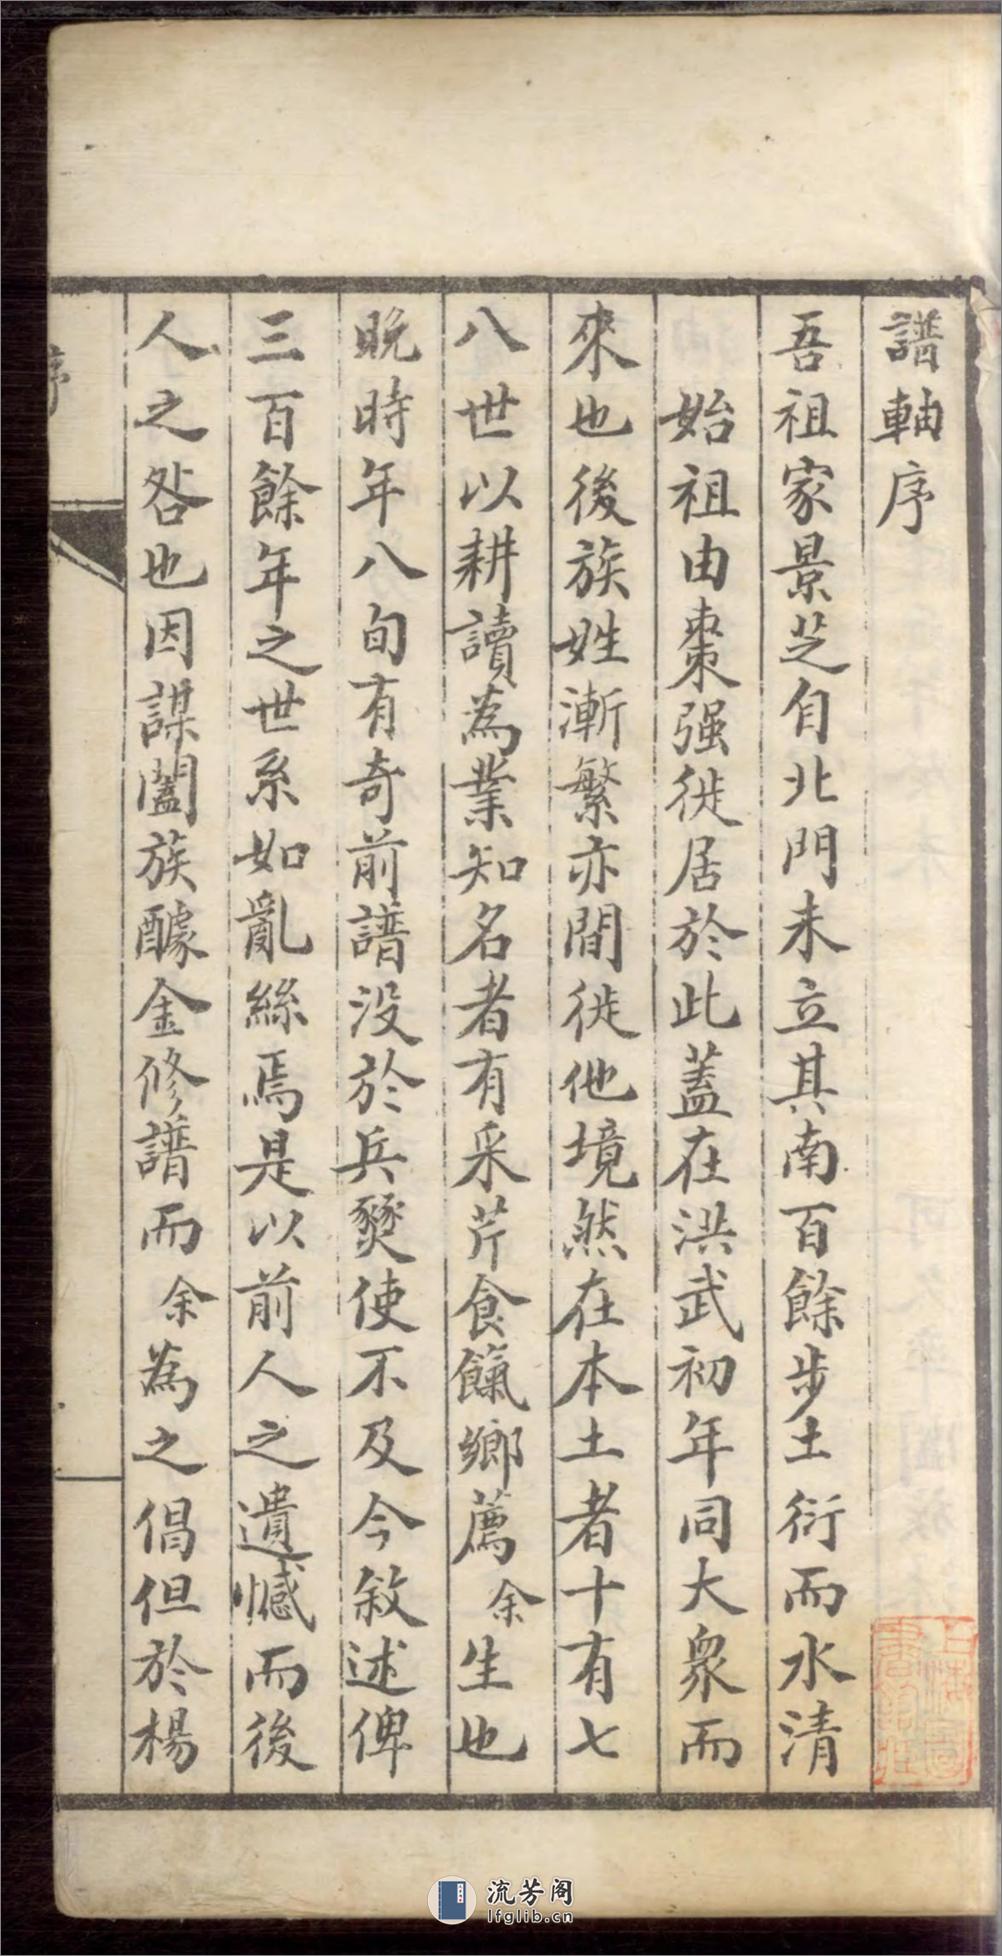 譜軸序
吾祖家景芝自北門未立其南百餘步土衍而水清
始祖由棗强徙居於此蓋在洪武初年同大衆而
來也後族姓漸繁亦間徙他境然在本土者十有七
八世以耕讀為業知名者有采芹食餼鄉薦余生也
晚時年八旬有奇前譜没於兵燹使不及今敘述俾
三百餘年之世系如亂絲焉是以前人之遺憾而後
人之咎也因謀闔族醵金修譜而余為之倡但於楊
序
流芳阁
lfglib.cn